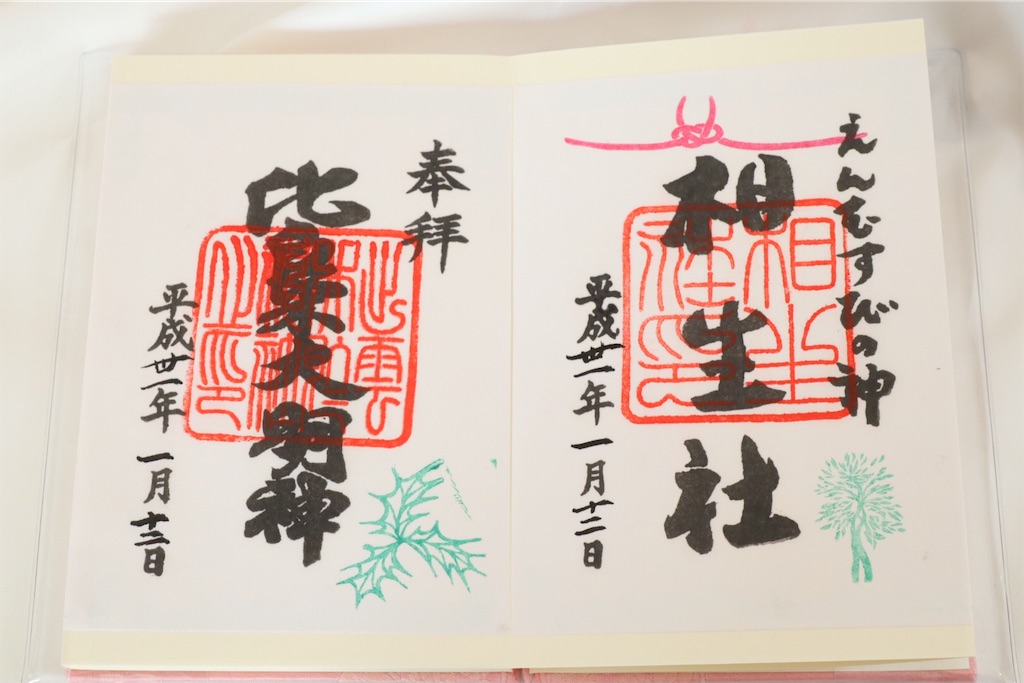 えんむすびの神
相生社
相生社印
平成卅一年一月十二日
奉拝
比良木大明神
平成卅一年一月十二日